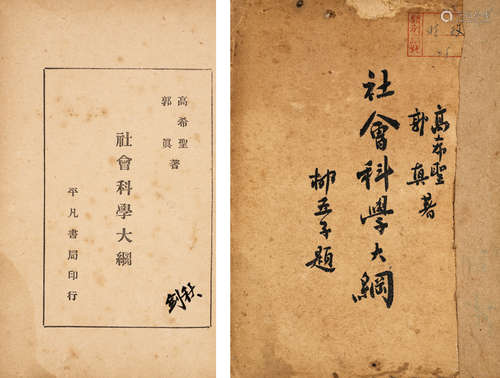 高希聖
郭眞著
社會科學大綱
平凡書局印行
高希聖
郭真著
社會科學大綱
柳五子題